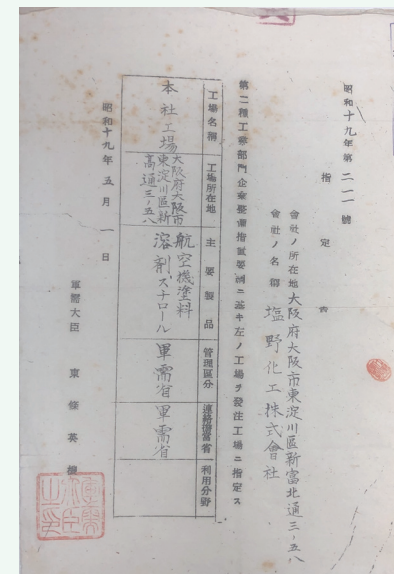 昭和十九年第二一一號
指定書
會社ノ所在地 大阪府大阪市東淀川區新富北通三ノ五八
會社ノ名稱 塩野化工株式會社
第二種工業部門企業整備指置要綱ニ基キ左ノ工場ヲ發注工場ニ指定ス
工場名稱 工場所在地 主要製品 管理區分 連絡擔當省 利用分野
本社工場 大阪府大阪市東淀川區新高通三ノ五八 航空機塗料溶剤、スチロール 軍需省 軍需省
昭和十九年五月一日
軍需大臣 東條英機